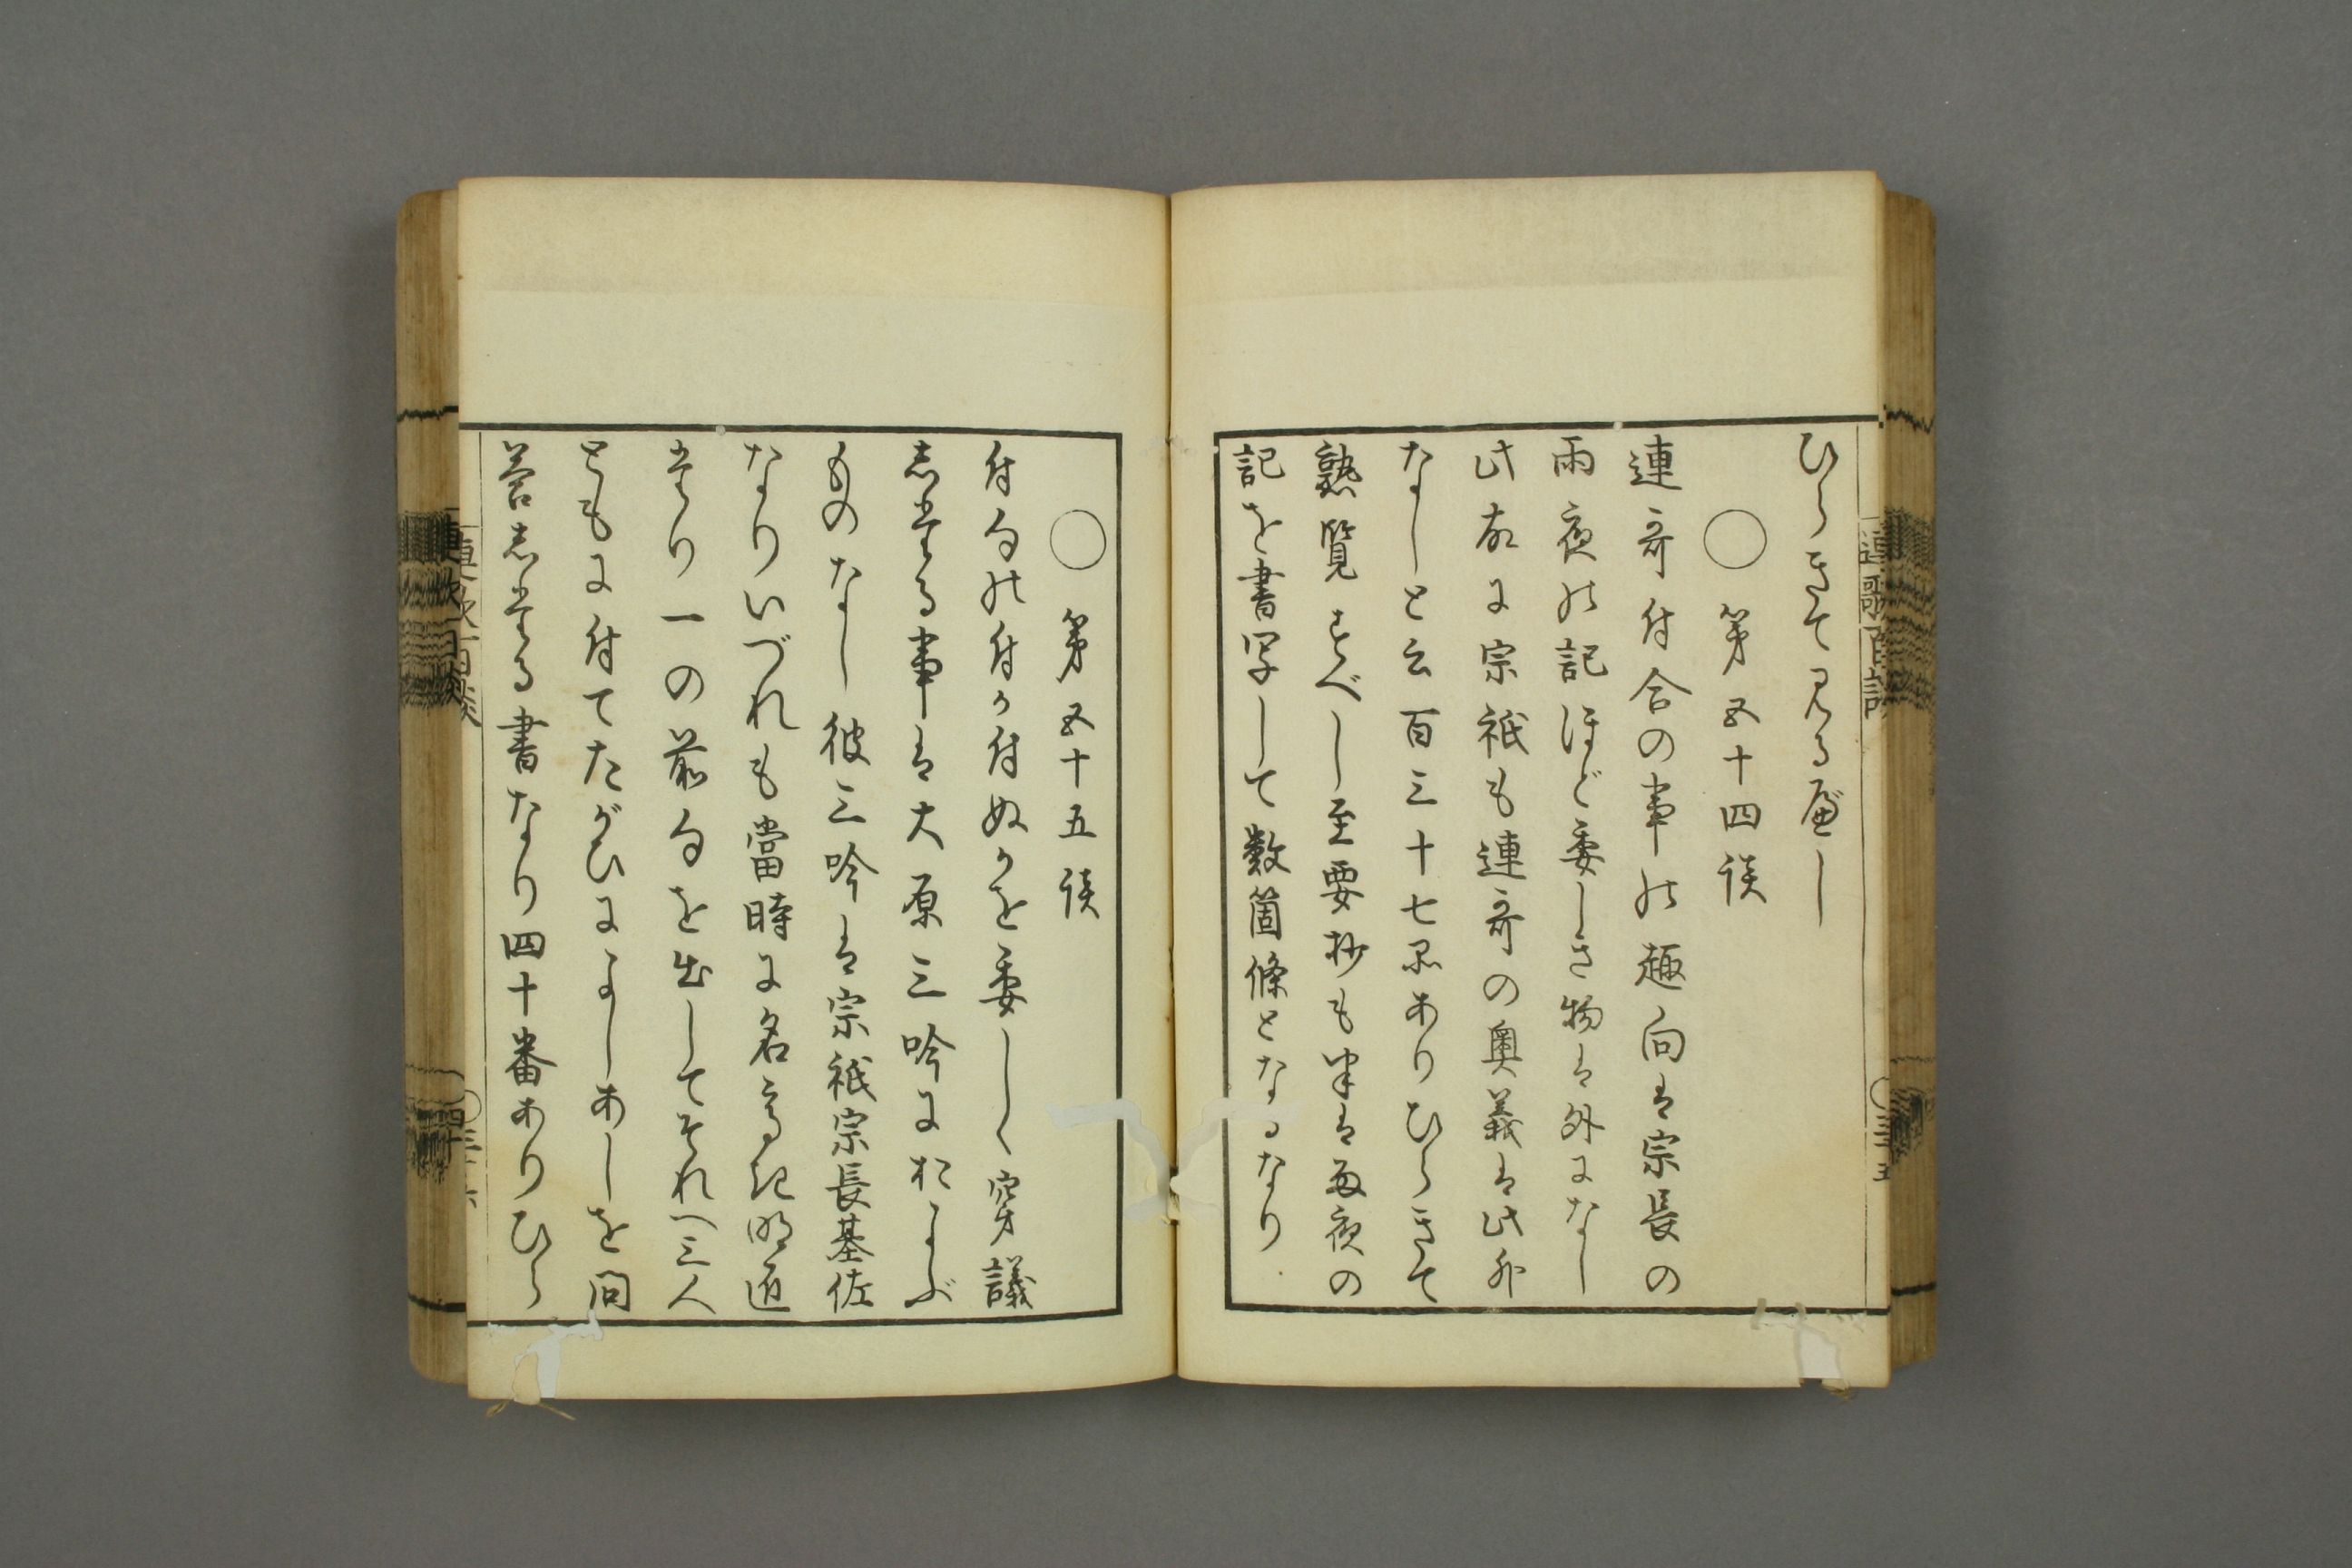 ひらきて見る应し
○第五十四談
連哥付合の事の趣向は宗長の
雨夜の記ほど委しき物は外になし
此故に宗祇も連哥の奥義は此外
なしと云百三十七条ありひらきて
熟覧すべし至要抄も半は雨夜の
記を書写して数箇條となるなり
連歌百談
○三十五
○第五十五談
付句の付か付ぬかを委しく穿議
したる事は大原三吟におよぶ
ものなし彼三吟は宗祇宗長基佐
なりいづれも當時に名高き明匠
たり一の前句を出してそれへ三人
ともに付てたがひによしあしを問
答したる書なり四十番ありひら
連歌百談